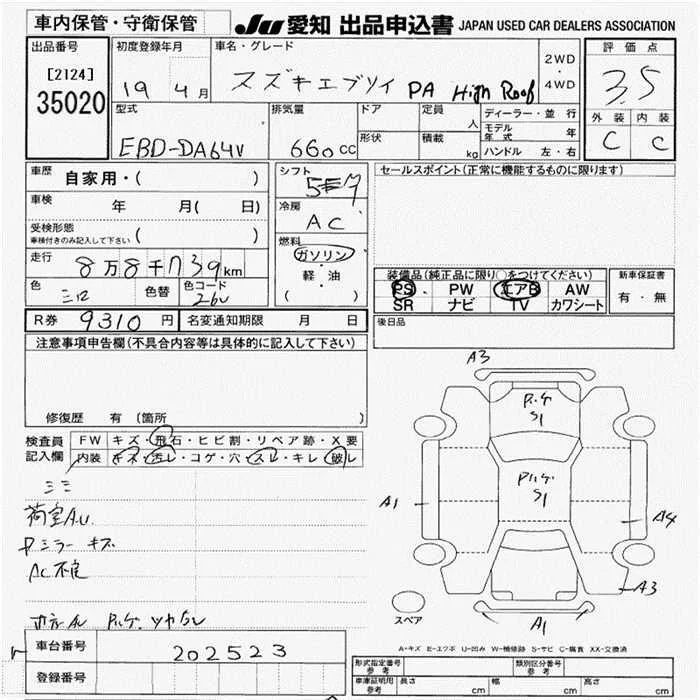 車内保管・守衛保管
JU 愛知 出品申込書 JAPAN USED CAR DEALERS ASSOCIATION
出品番号
[2124]
35020
初度登録年月
19 4月
車名・グレード
スズキエブリイ PA High Roof
2WD
・
4WD
評価点
3.5
外装 内装
C C
型式
EBD-DA64V
排気量
660cc
ドア
形状
定員
人
積載
kg
ディーラー・並行
モデル年式 年
ハンドル 左・右
車歴 自家用・( )
車検 年 月( 日)
受検形態
車検付きのみ記入して下さい ( )
走行 8万8千739km
色 色替 色コード
26U
シフト
冷房
AC
燃料
ガソリン
・
軽・油
( )
セールスポイント(正常に機能するものに限ります)
装備品(純正品に限り○をつけてください)
PS PW エアB AW
SR ナビ TV カワシート
新車保証書
有・無
R券 9310円 名変通知期限 月 日
後日品
注意事項申告欄(不具合内容等は具体的に記入して下さい)
修復歴 有(箇所 )
検査員
記入欄
FW キズ・飛石・ヒビ割・リペア跡・X要
内装 キズ・汚レ・コゲ・穴・スレ・キレ・破レ
荷室A.U.
Pミラーキズ
AC不良
A3
S1
S1
A1
A4
A3
A1
スペア
A-キズ E-エクボ U-凹み W-補修跡 S-サビ C-腐食 XX-交換済
車台番号 202523
登録番号
形式指定番号
参考
類別区分番号
参考
車庫証明用
参考
長さ cm 幅 cm 高さ cm